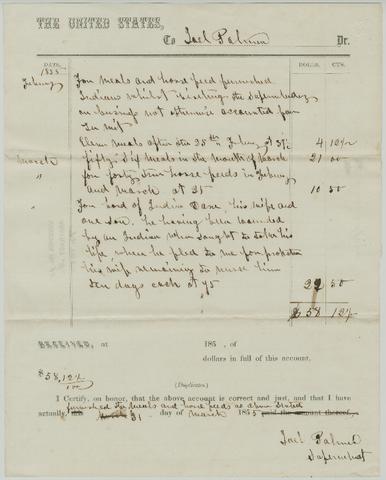 THE UNITED STATES,
To Joel Palmer Dr.
DATE. DOLLS. CTS.
1855
For meals and horse feed furnished
Indians whilst visiting the Superintendency
on business not otherwise accounted for
To wit
Eleven meals after the 25th Febry at 37½ 4 12½
March fifty six meals in the month of March 21 00
" for forty two horse feeds in
and March at 25 10 50
" For board of Indian Dave his wife and
one son. he having been wounded
by an Indian who sought to take his
life, when he fled to me for protection
his wife remaining to nurse him
ten days each at 75 22 50
$ 58 12½
RECEIVED, at 185 , of
dollars in full of this account.
$58,12½
/100
(Duplicates)
I Certify, on honor, that the above account is correct and just, and that I have
furnished the meals and horse feeds as above stated
actually, this March 31 day of March 1855 paid the amount thereof.
Joel Palmer
Superintendent